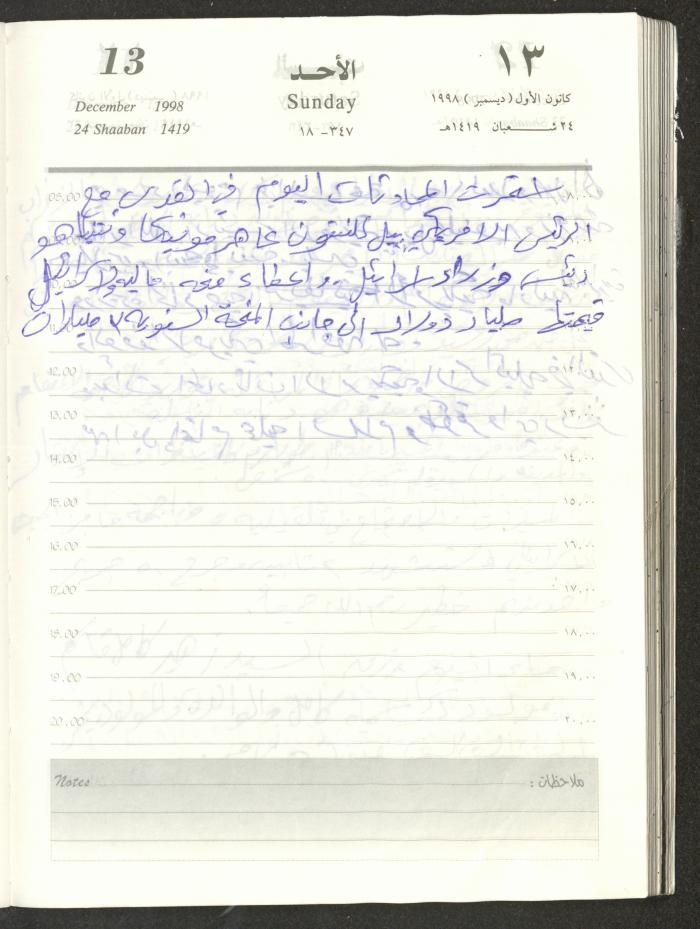 13
الأحد
١٣
December 1998
Sunday
كانون الأول (ديسمبر) ١٩٩٨
24 Shaaban 1419
٣٤٧ - ١٨
٢٤ شعبان ١٤١٩هـ
استمرت المحادثات اليوم في القدس مع
الرئيس الامريكي بيل كلنتون عاهر مونيكا ونتنياهو
رئيس وزراء اسرائيل واعطاء منحة مالية لاسرائيل
قيمتها مليار دولار الى جانب المنحة السنوية ٣ مليارات
12.00
13.00 ١٣,٠٠
14.00 ١٤,٠٠
15.00 ١٥,٠٠
16.00 ١٦,٠٠
17.00 ١٧,٠٠
18.00 ١٨,٠٠
19.00 ١٩,٠٠
20.00 ٢٠,٠٠
Notes
ملاحظات :